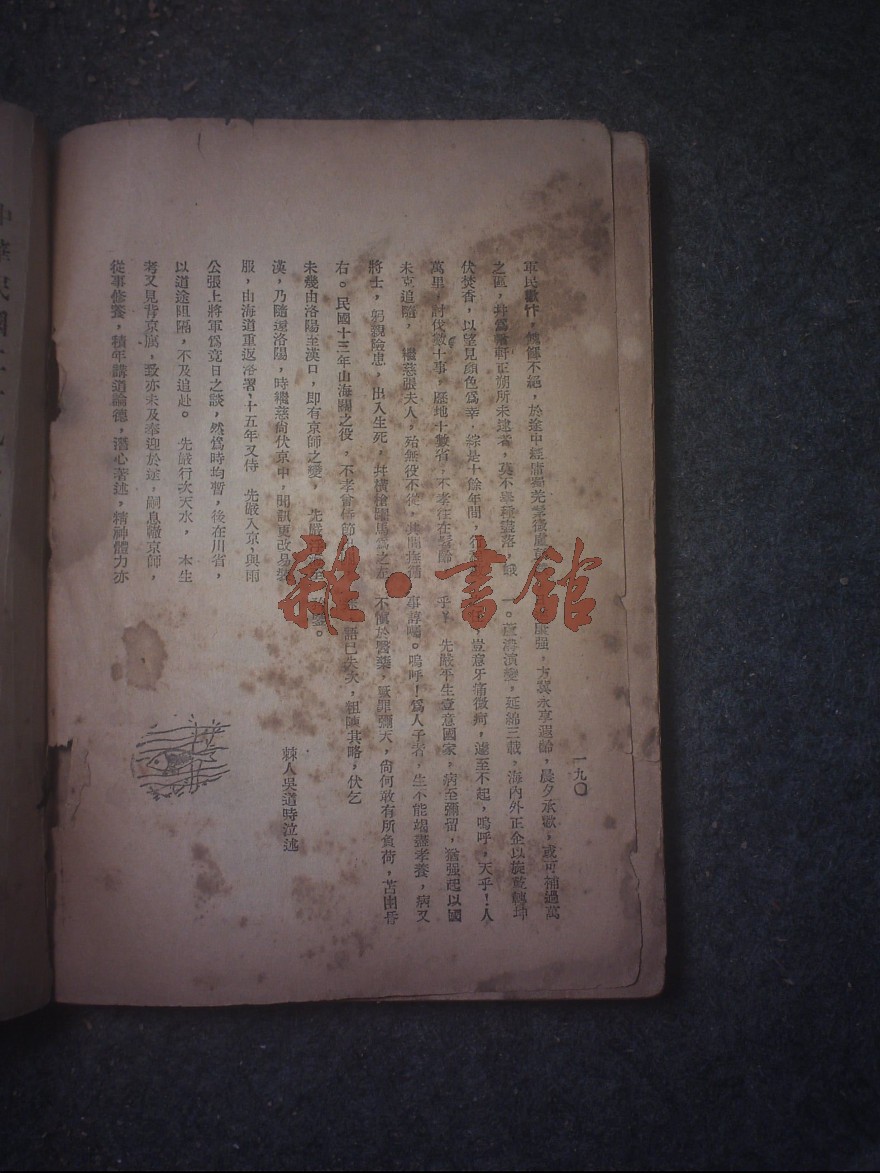 一九〇
軍民歡忭，不絕，於途中經
之區，幷爲輶軒正朔所未逮者，莫不舉種蠻落，蛾
伏焚香，以望見顏色爲幸，綜是十餘年間，
萬里，討伐數十事，歷地十數省，不孝
未克追隨，繼慈張夫人，殆無役不從，其間撫循
將士，躬親險患，出入生死，幷橫槍躍馬爲之左
右。民國十三年山海關之役，不孝曾侍節
未幾由洛陽至漢口，即有京師之變，先嚴
漢，乃隨還洛陽，時繼慈尙伏京中，聞訊更改易裝
服，由海道重返洛署，十五年又侍　先嚴入京，與雨
公張上將軍爲竟日之談，然爲時均暫，後在川省，
以道途阻隔，不及追赴。　先嚴行次天水，　本生
考又見背京寓，致亦未及奉迎於途，嗣息轍京師，
從事修養，積年講道論德，潛心著述，精神體力亦
康强，方冀永享遐齡，晨夕承歡，或可補過萬
一。蘆溝演變，延綿三載，海內外正企以旋乾轉坤
，豈意牙痛微疴，遽至不起，嗚呼，天乎！人
乎！　先嚴平生壹意國家，病至彌留，猶强起以國
事諄囑。嗚呼！爲人子者，生不能竭盡孝養，病又
不愼於醫藥，厥罪彌天，尙何敢有所負荷，苫凷昏
語已失次，粗陳其略，伏乞
鑒。
棘人吳道時泣述
雜·書館
中華民國